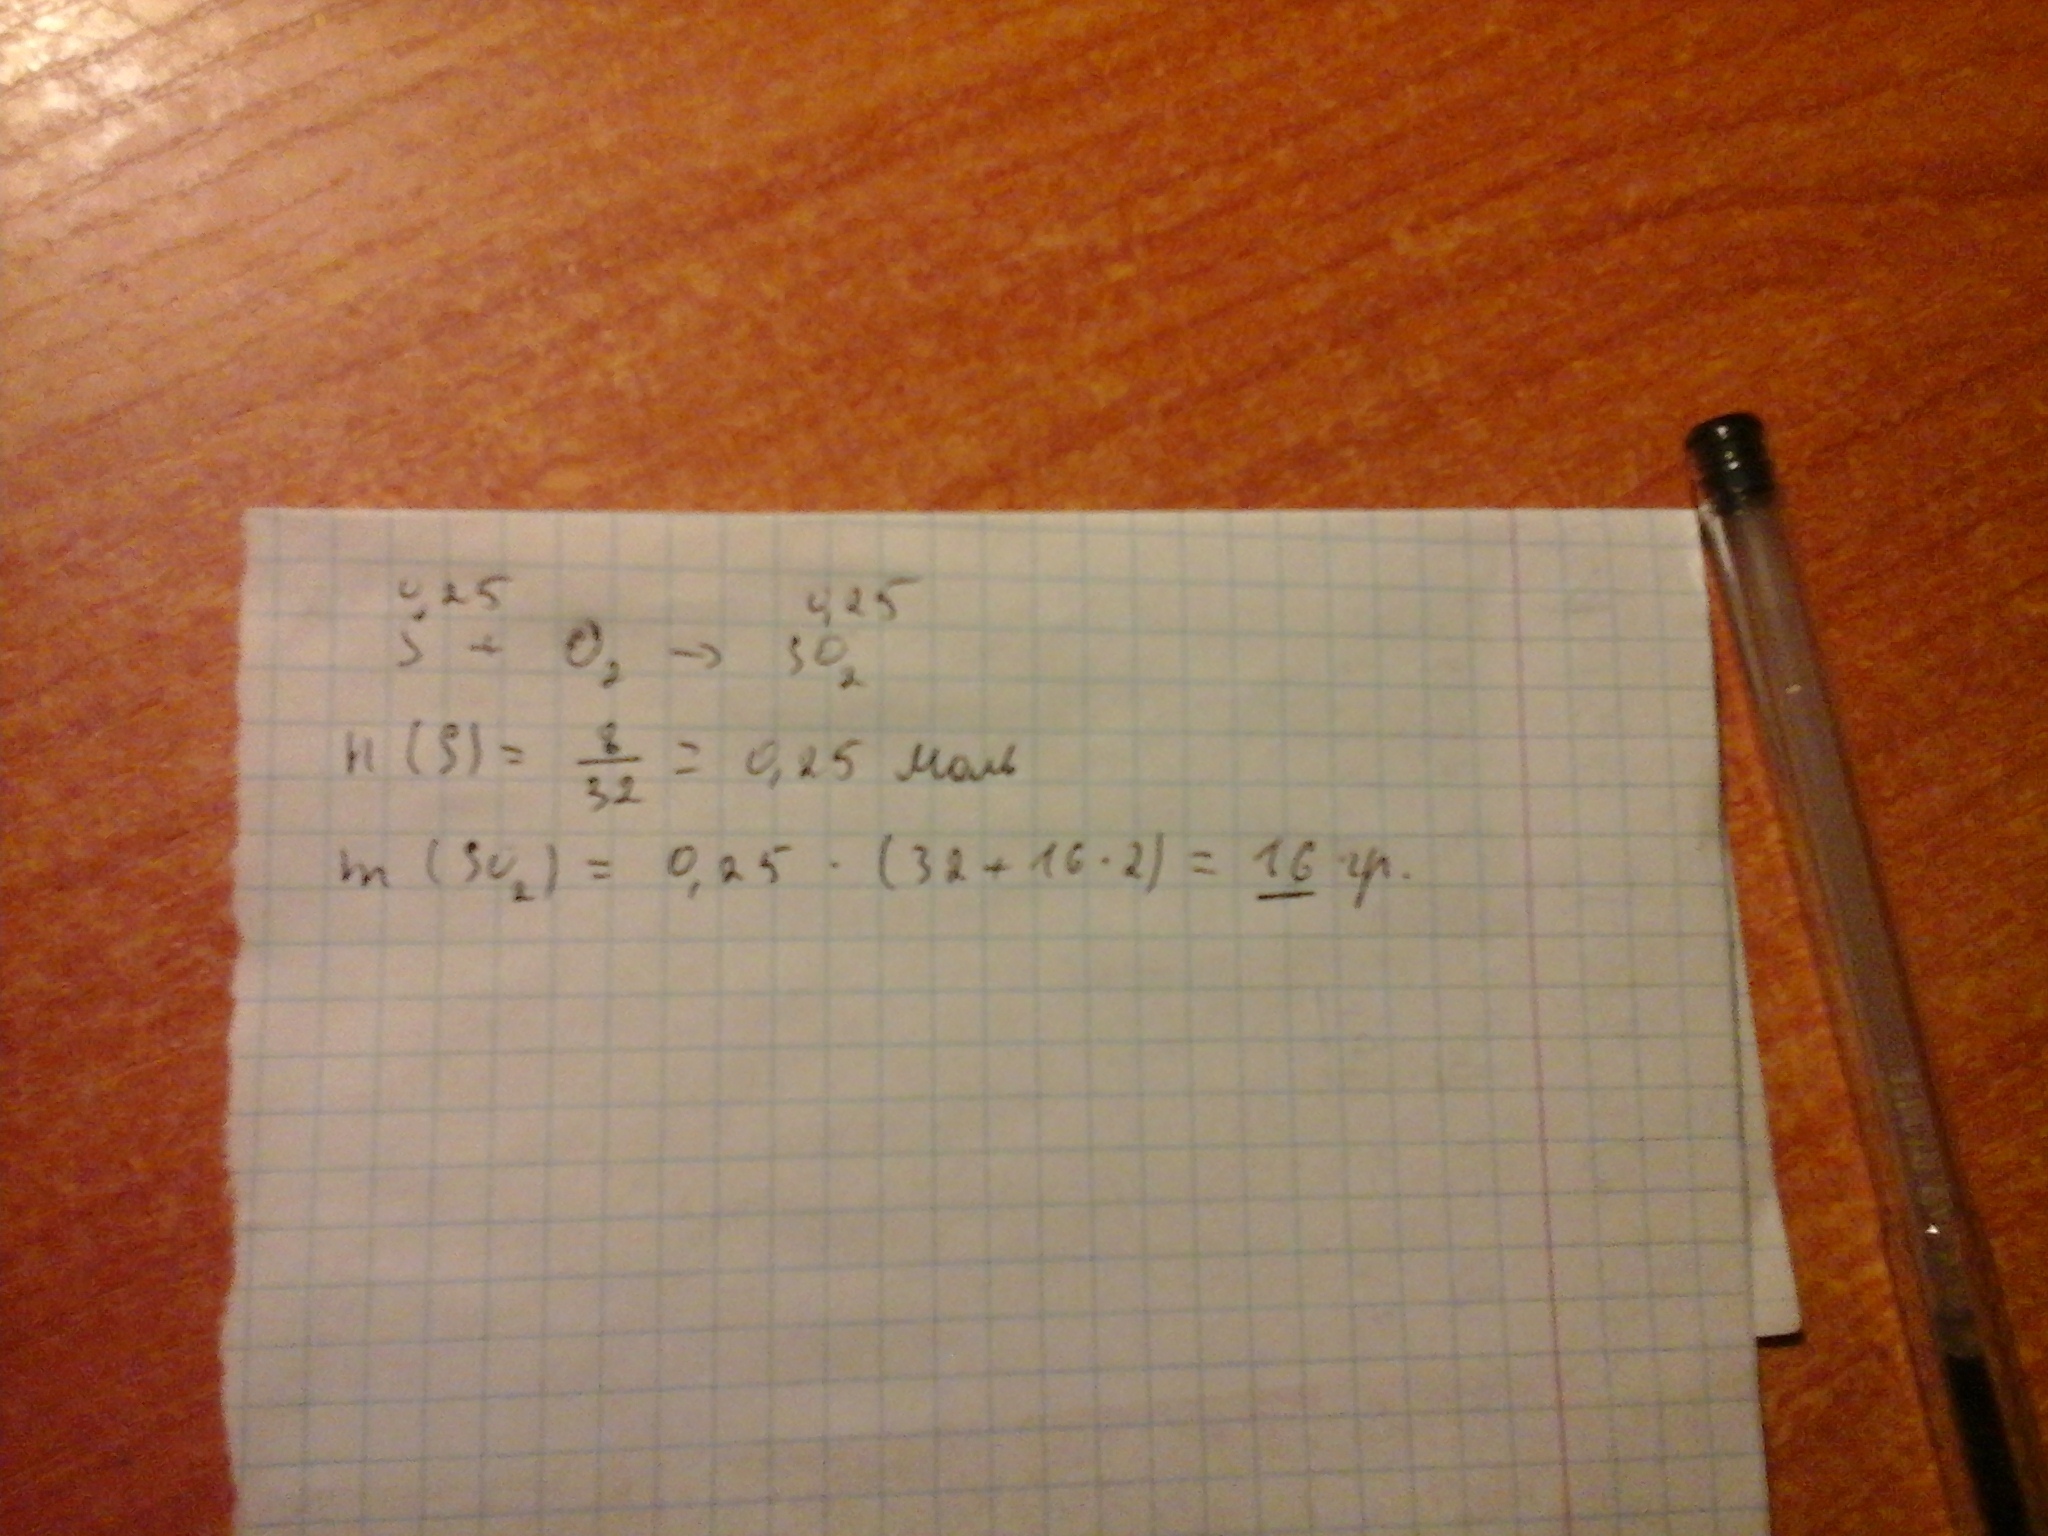 0,25 0,25
S + O₂ → SO₂
n (S) = 8/32 = 0,25 моль
m (SO₂) = 0,25 · (32 + 16 · 2) = 16 гр.